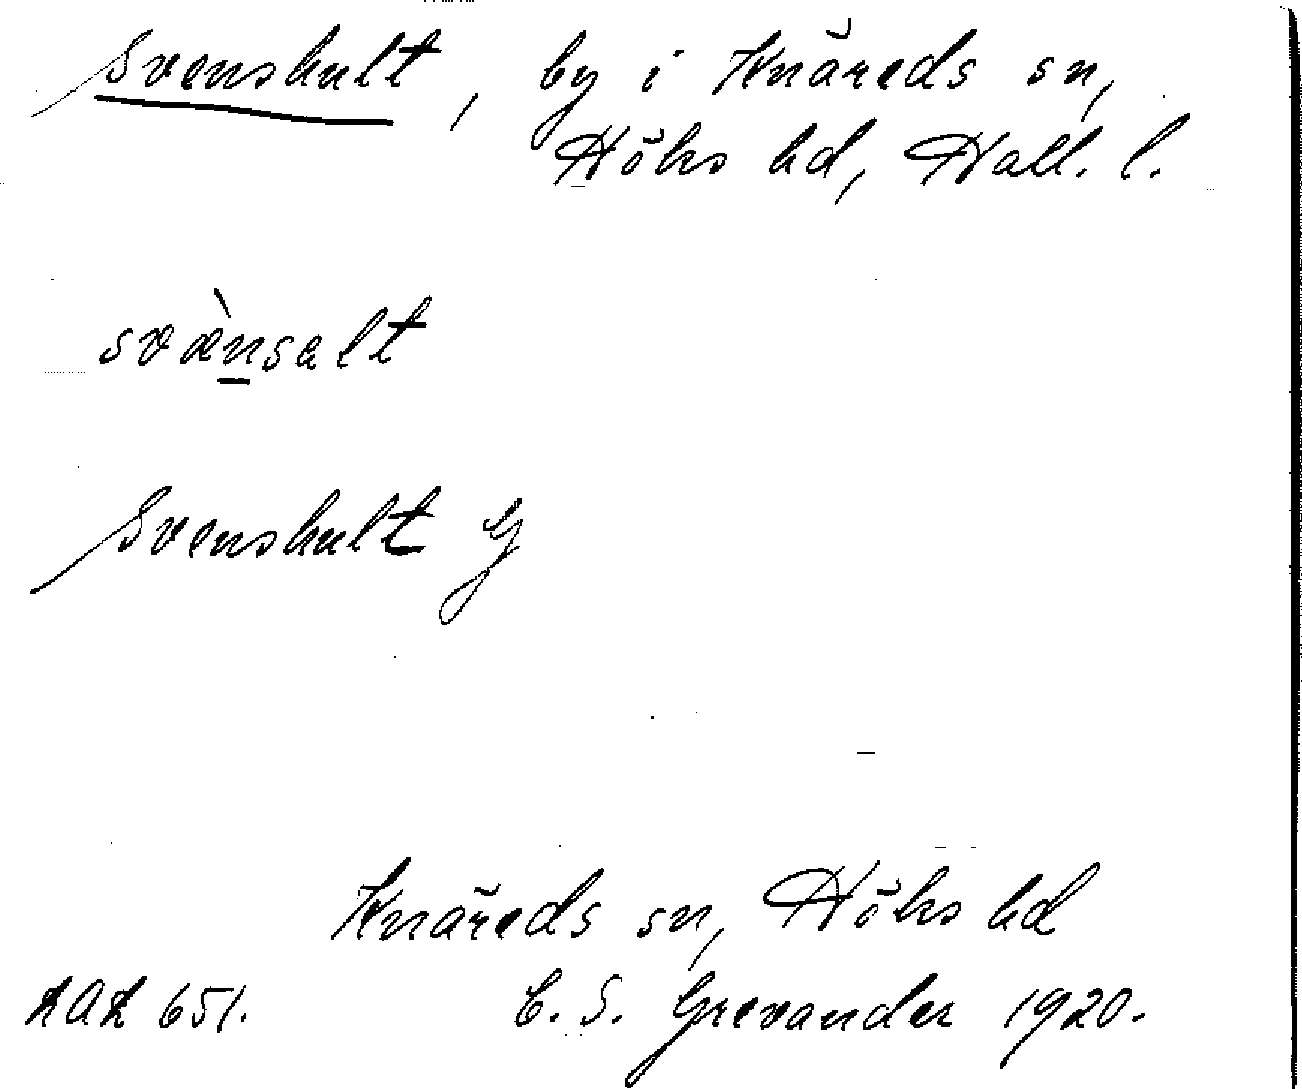 Svenshult, by i Knäreds sn,
Höks hd, Hall. l.
svæ̀nsalt
Svenshult G
Knäreds sn, Höks hd
LAL 651. C. S. Grevander 1920.